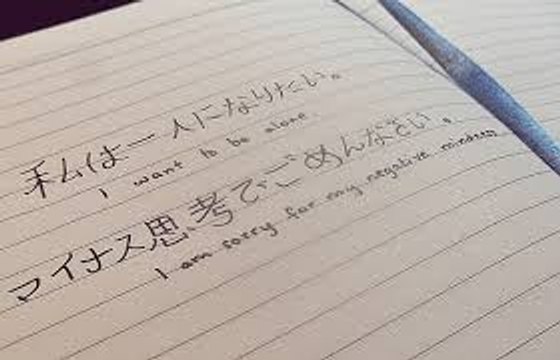 私は一人になりたい。
I want to be alone.
マイナス思考でごめんなさい。
I am sorry for my negative mindness